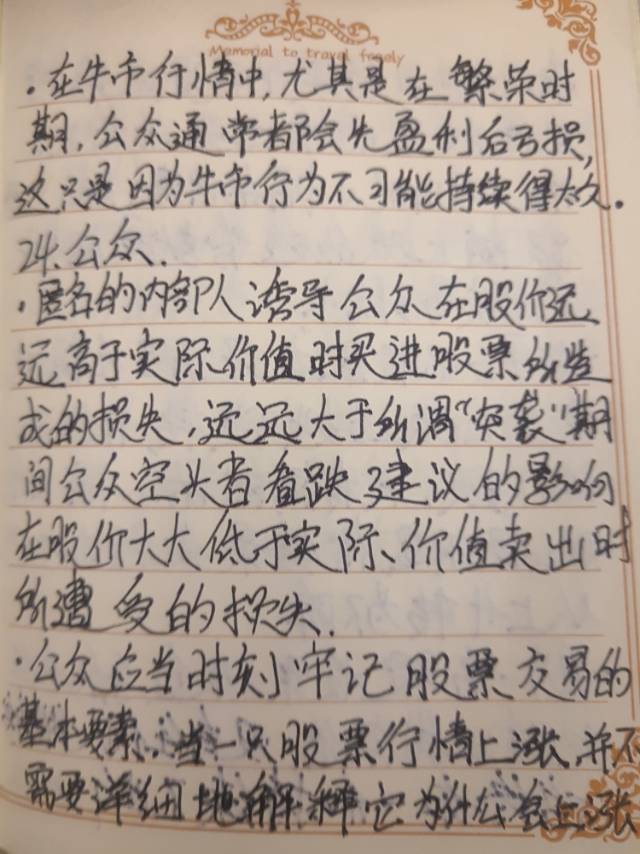 Memorial to travel freely
·在牛市行情中,尤其是在繁荣时
期,公众通常都会先盈利后亏损,
这只是因为牛市行为不可能持续得太久。
24.公众.
·匿名的内部人诱导公众在股价远
远高于实际价值时买进股票所造
成的损失,远远大于所谓“突袭”期
间公众空头者看跌建议的影响
在股价大大低于实际价值卖出时
所遭受的损失.
·公众应当时刻牢记股票交易的
基本要素.当一只股票行情上涨,并不
需要详细地解释它为什么会上涨